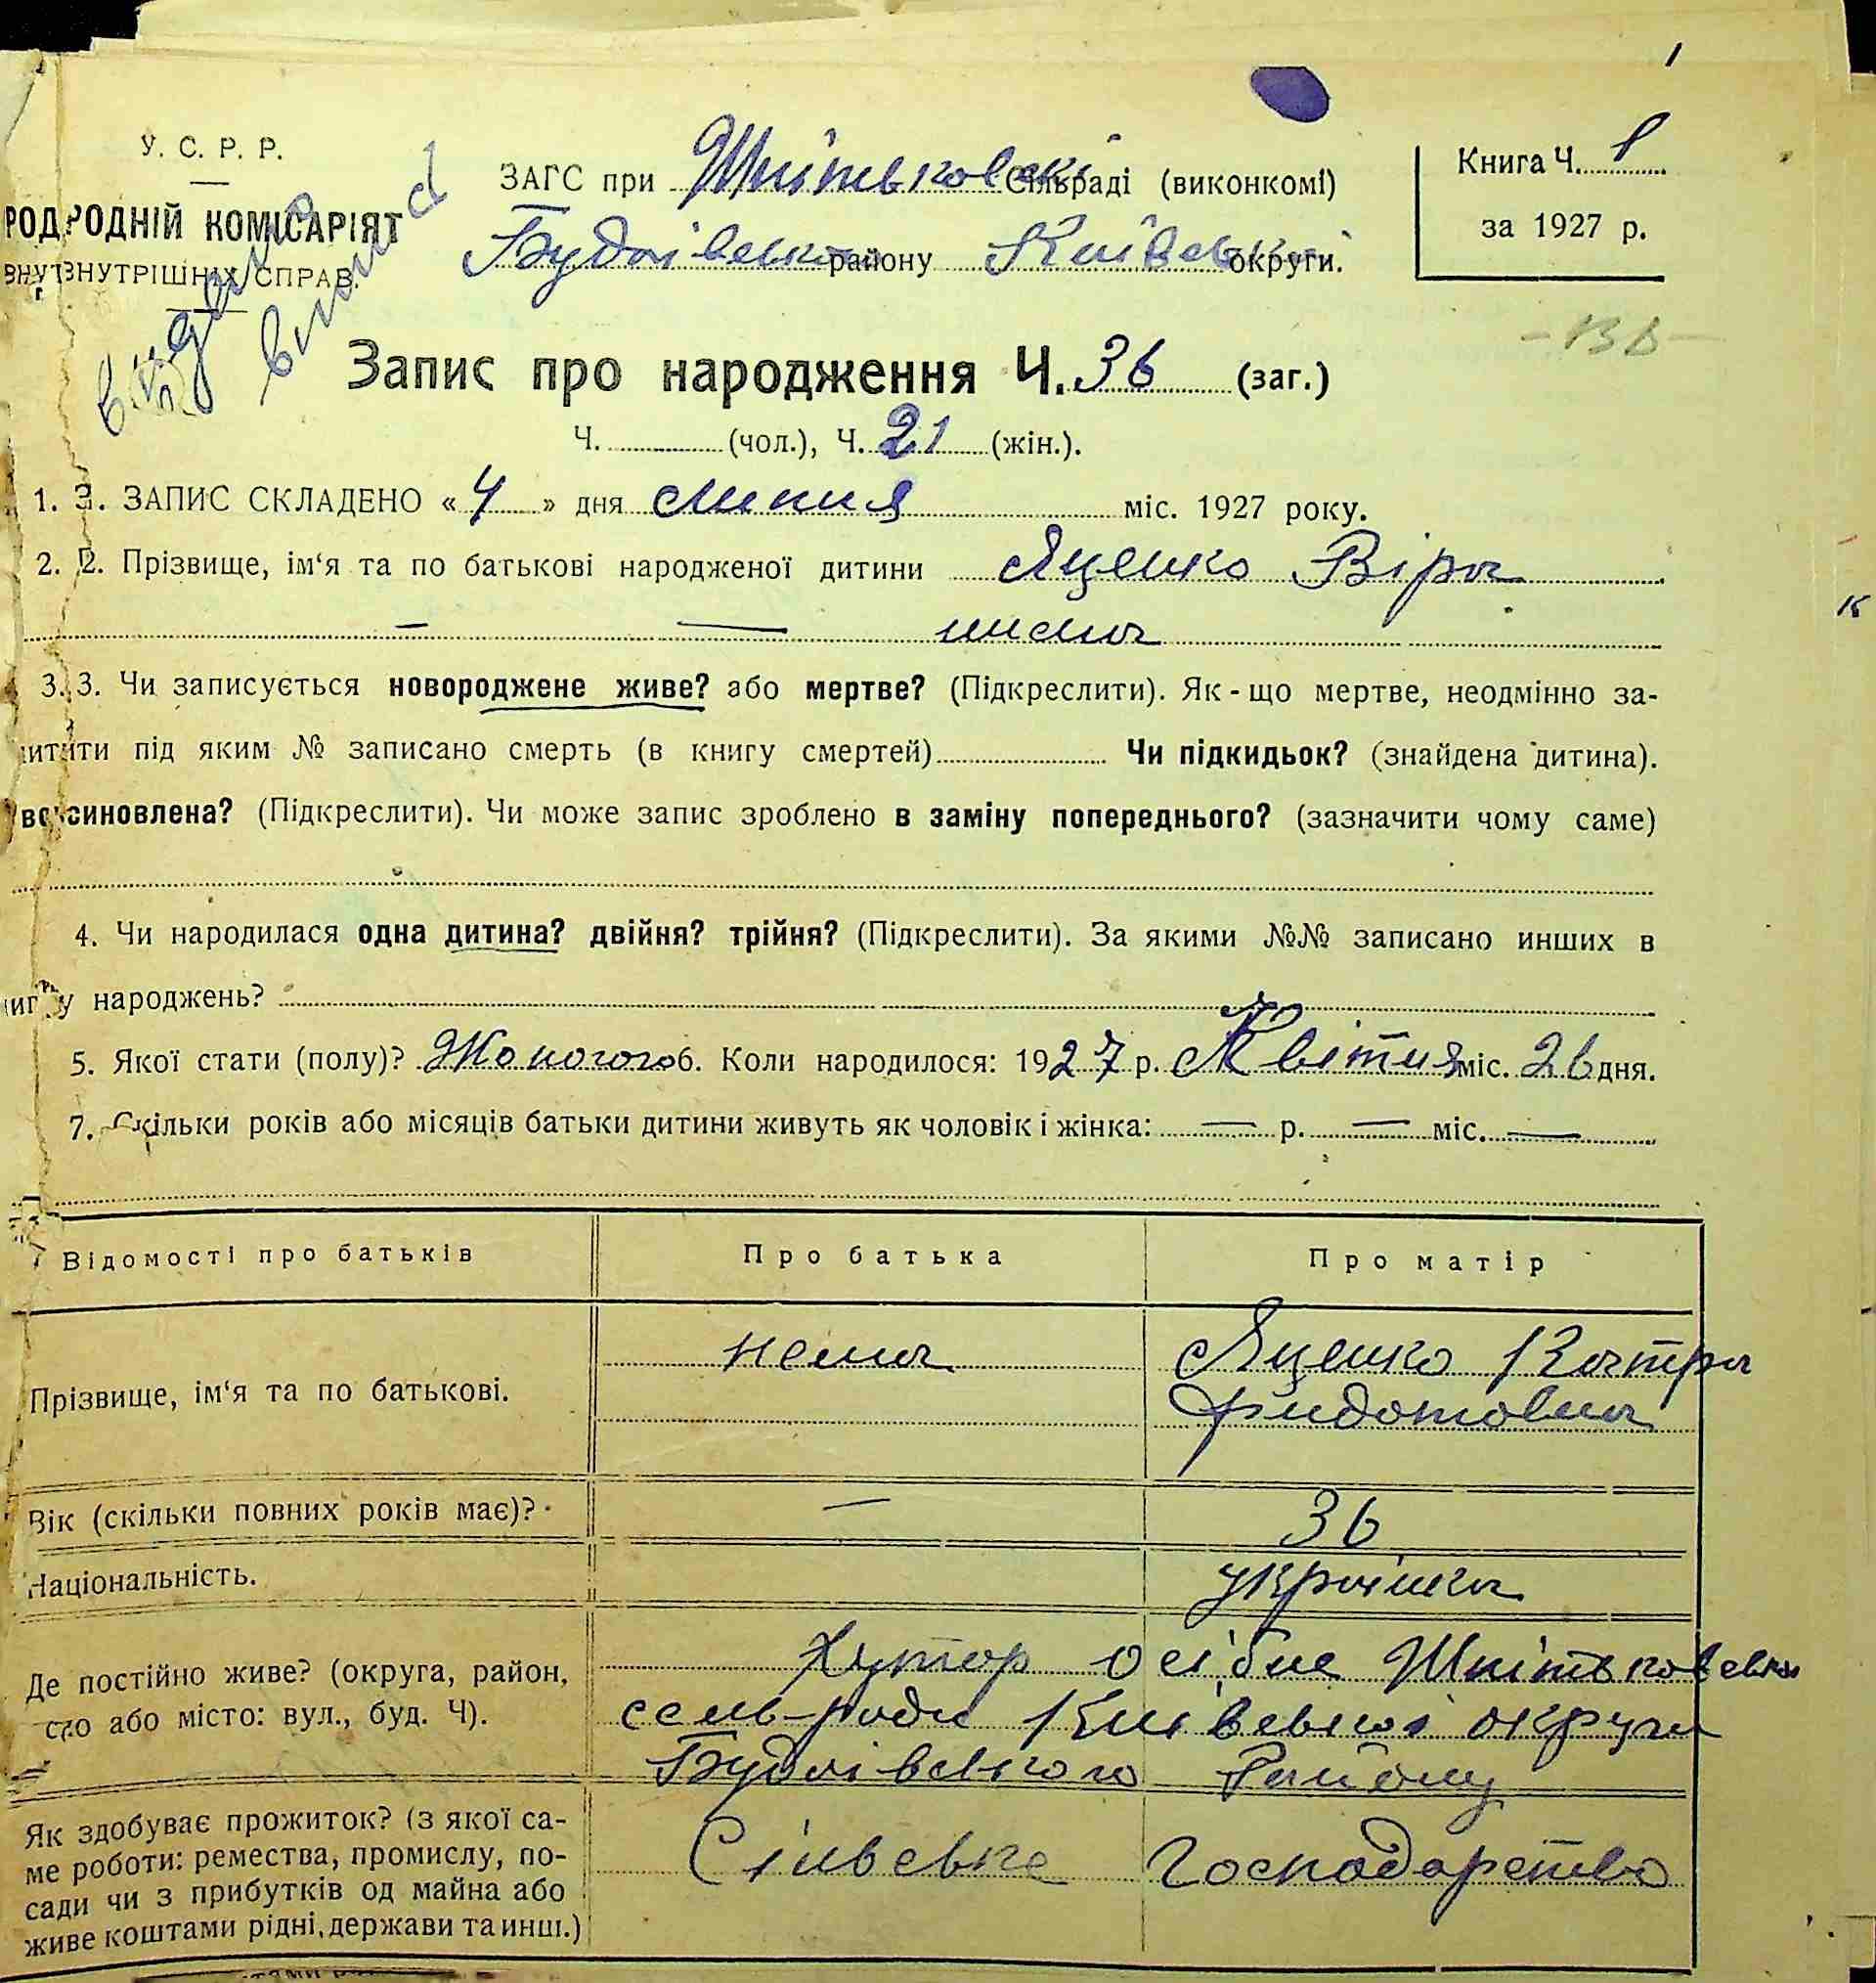 У. С. Р. Р.
РОДНІЙ КОМІСАРІЯТ
ВНУТРІШНІХ СПРАВ.
видано
ЗАГС при Шпітьковскі сільраді (виконкомі)
Будаівського району Київської округи.
Книга Ч.
за 1927 р.
Запис про народження Ч. 36 (заг.)
Ч. (чол.), Ч. 21 (жін.).
1. ЗАПИС СКЛАДЕНО « 4 » дня Липня міс. 1927 року.
2. Прізвище, ім‘я та по батькові народженої дитини Яценко Віра
— — нема
3. Чи записується новороджене живе? або мертве? (Підкреслити). Як-що мертве, неодмінно за-
ити під яким № записано смерть (в книгу смертей) Чи підкидьок? (знайдена дитина).
всиновлена? (Підкреслити). Чи може запис зроблено в заміну попереднього? (зазначити чому саме)
4. Чи народилася одна дитина? двійня? трійня? (Підкреслити). За якими №№ записано инших в
у народжень?
5. Якої стати (полу)? Жоночого 6. Коли народилося: 1927 р. Квітня міс. 26 дня.
7. Скільки років або місяців батьки дитини живуть як чоловік і жінка: — р. — міс. —
Відомості про батьків Про батька Про матір
Прізвище, ім‘я та по батькові. нема Яценко Катра
Фидотовна
Вік (скільки повних років має)? — 36
Національність. українка
Де постійно живе? (округа, район, Хутор осібне Шпітьковскы
село або місто: вул., буд. Ч). сель-ради Київської округи
Будаівського Району
Як здобуває прожиток? (з якої са-
ме роботи: ремества, промислу, по- Сільське Господарство
сади чи з прибутків од майна або
живе коштами рідні, держави та инш.)